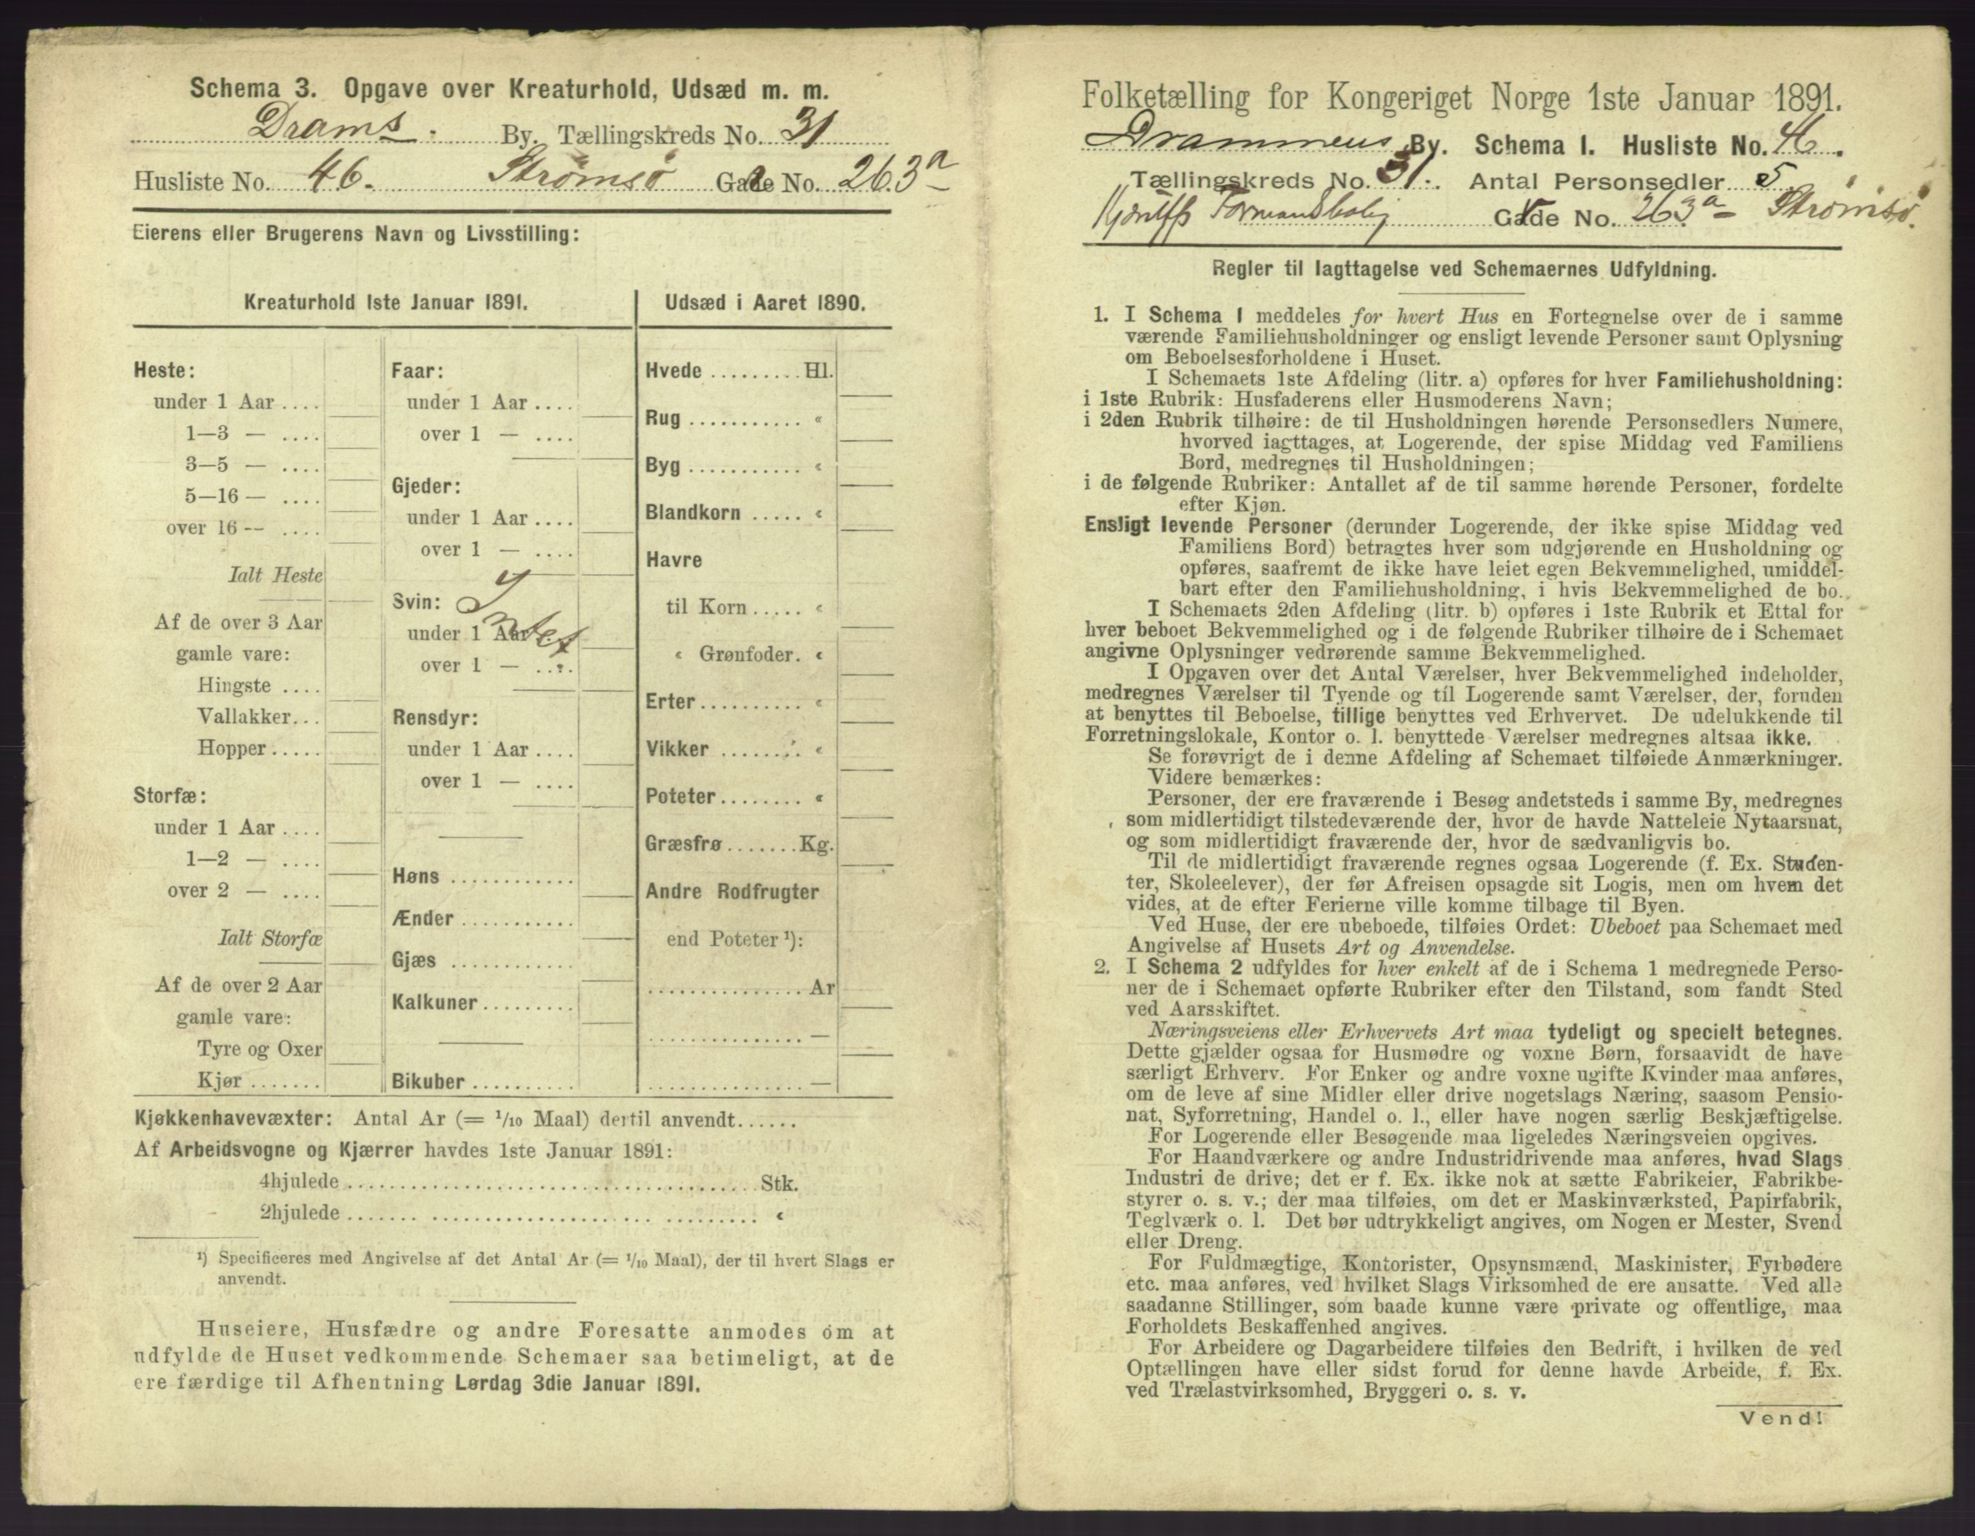 Schema 3. Opgave over Kreaturhold, Udsæd m. m.
Drams. By. Tællingskreds No. 31
Husliste No. 46. Strømsø Gade No. 263a
Eierens eller Brugerens Navn og Livsstilling:
Kreaturhold 1ste Januar 1891.
Heste:
under 1 Aar ....
1—3 — ....
3—5 — ....
5—16 — ....
over 16 — ....
Ialt Heste
Af de over 3 Aar
gamle vare:
Hingste ....
Vallakker...
Hopper.....
Storfæ:
under 1 Aar ....
1—2 — ....
over 2 — ....
Ialt Storfæ
Af de over 2 Aar
gamle vare:
Tyre og Oxer
Kjør.......
Faar:
under 1 Aar ....
over 1 — ....
Gjeder:
under 1 Aar ....
over 1 — ....
Svin: Intet
under 1 Aar
over 1 — ...
Rensdyr:
under 1 Aar ....
over 1 — ....
Høns ............
Ænder ...........
Gjæs ............
Kalkuner.........
Bikuber ..........
Udsæd i Aaret 1890.
Hvede .........Hl.
Rug ........... «
Byg ........... «
Blandkorn ..... «
Havre
til Korn ..... «
« Grønfoder. «
Erter.......... «
Vikker ........ «
Poteter........ «
Græsfrø.......Kg.
Andre Rodfrugter
end Poteter ¹):
...............Ar
............... —
............... —
Kjøkkenhavevæxter: Antal Ar (= 1/10 Maal) dertil anvendt......
Af Arbeidsvogne og Kjærrer havdes 1ste Januar 1891:
4hjulede........................................ Stk.
2hjulede........................................ «
¹) Specificeres med Angivelse af det Antal Ar (= 1/10 Maal), der til hvert Slags er
anvendt.
Huseiere, Husfædre og andre Foresatte anmodes om at
udfylde de Huset vedkommende Schemaer saa betimeligt, at de
ere færdige til Afhentning Lørdag 3die Januar 1891.
Folketælling for Kongeriget Norge 1ste Januar 1891.
Drammens By. Schema I. Husliste No. 46.
Tællingskreds No. 31. Antal Personsedler 5.
Gade No. 263a Strømsø.
Regler til Iagttagelse ved Schemaernes Udfyldning.
1. I Schema 1 meddeles for hvert Hus en Fortegnelse over de i samme
værende Familiehusholdninger og ensligt levende Personer samt Oplysning
om Beboelsesforholdene i Huset.
I Schemaets 1ste Afdeling (litr. a) opføres for hver Familiehusholdning:
i 1ste Rubrik: Husfaderens eller Husmoderens Navn;
i 2den Rubrik tilhøire: de til Husholdningen hørende Personsedlers Numere,
hvorved iagttages, at Logerende, der spise Middag ved Familiens
Bord, medregnes til Husholdningen;
i de følgende Rubriker: Antallet af de til samme hørende Personer, fordelte
efter Kjøn.
Ensligt levende Personer (derunder Logerende, der ikke spise Middag ved
Familiens Bord) betragtes hver som udgjørende en Husholdning og
opføres, saafremt de ikke have leiet egen Bekvemmelighed, umiddel-
bart efter den Familiehusholdning, i hvis Bekvemmelighed de bo.
I Schemaets 2den Afdeling (litr. b) opføres i 1ste Rubrik et Ettal for
hver beboet Bekvemmelighed og i de følgende Rubriker tilhøire de i Schemaet
angivne Oplysninger vedrørende samme Bekvemmelighed.
I Opgaven over det Antal Værelser, hver Bekvemmelighed indeholder,
medregnes Værelser til Tyende og til Logerende samt Værelser, der, foruden
at benyttes til Beboelse, tillige benyttes ved Erhvervet. De udelukkende til
Forretningslokale, Kontor o. l. benyttede Værelser medregnes altsaa ikke.
Se forøvrigt de i denne Afdeling af Schemaet tilføiede Anmærkninger.
Videre bemærkes:
Personer, der ere fraværende i Besøg andetsteds i samme By, medregnes
som midlertidigt tilstedeværende der, hvor de havde Natteleie Nytaarsnat,
og som midlertidigt fraværende der, hvor de sædvanligvis bo.
Til de midlertidigt fraværende regnes ogsaa Logerende (f. Ex. Studen-
ter, Skoleelever), der før Afreisen opsagde sit Logis, men om hvem det
vides, at de efter Ferierne ville komme tilbage til Byen.
Ved Huse, der ere ubeboede, tilføies Ordet: Ubeboet paa Schemaet med
Angivelse af Husets Art og Anvendelse.
2. I Schema 2 udfyldes for hver enkelt af de i Schema 1 medregnede Perso-
ner de i Schemaet opførte Rubriker efter den Tilstand, som fandt Sted
ved Aarsskiftet.
Næringsveiens eller Erhvervets Art maa tydeligt og specielt betegnes.
Dette gjælder ogsaa for Husmødre og voxne Børn, forsaavidt de have
særligt Erhverv. For Enker og andre voxne ugifte Kvinder maa anføres,
om de leve af sine Midler eller drive nogetslags Næring, saasom Pensio-
nat, Syforretning, Handel o. l., eller have nogen særlig Beskjæftigelse.
For Logerende eller Besøgende maa ligeledes Næringsveien opgives.
For Haandværkere og andre Industridrivende maa anføres, hvad Slags
Industri de drive; det er f. Ex. ikke nok at sætte Fabrikeier, Fabrikbe-
styrer o. s. v.; der maa tilføies, om det er Maskinværksted, Papirfabrik,
Teglværk o. l. Det bør udtrykkeligt angives, om Nogen er Mester, Svend
eller Dreng.
For Fuldmægtige, Kontorister, Opsynsmænd, Maskinister, Fyrbødere
etc. maa anføres, ved hvilket Slags Virksomhed de ere ansatte. Ved alle
saadanne Stillinger, som baade kunne være private og offentlige, maa
Forholdets Beskaffenhed angives.
For Arbeidere og Dagarbeidere tilføies den Bedrift, i hvilken de ved
Optællingen have eller sidst forud for denne havde Arbeide, f. Ex.
ved Trælastvirksomhed, Bryggeri o. s. v.
Vend!